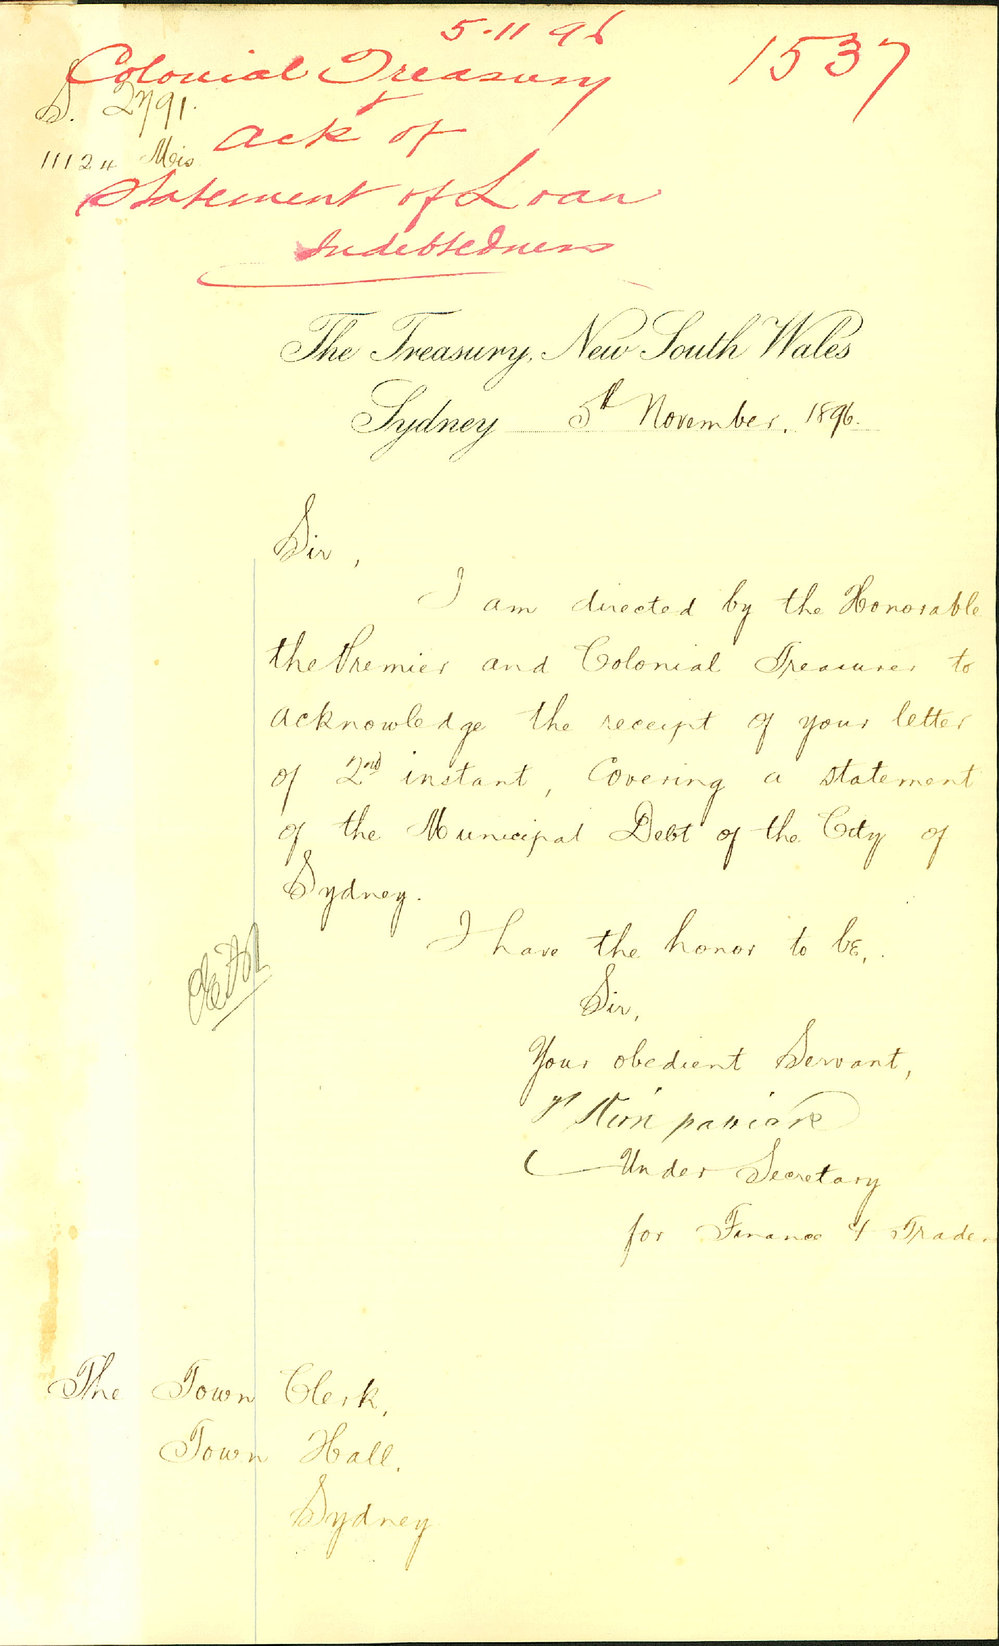 5-11 96
Colonial Treasury
1537
D. 2791.
Ack of
11124 Mis
Statement of Loan
Indebtedness
The Treasury, New South Wales
Sydney 5th November, 1896.
Sir,
I am directed by the Honorable
the Premier and Colonial Treasurer to
acknowledge the receipt of your letter
of 2nd instant, Covering a statement
of the Municipal Debt of the City of
Sydney.
I have the honor to be,
Sir,
Your obedient Servant,
Under Secretary
for Finance & Trade.
The Town Clerk,
Town Hall.
Sydney